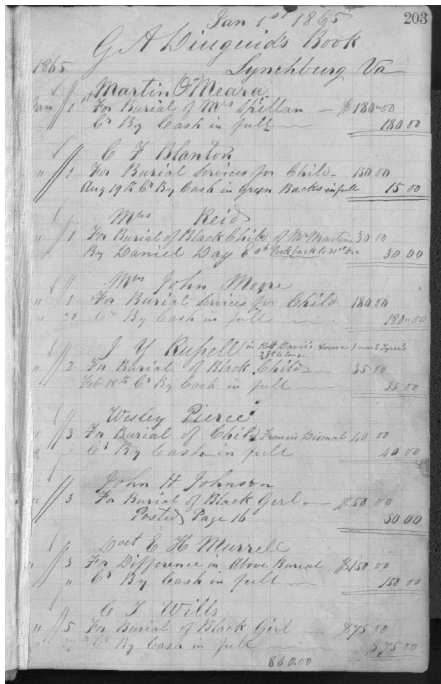 203
Jan 1st 1865
G A Diuguid's Book
1865 Lynchburg Va
Martin O'Meara
Jan 1 For Burial of Mrs $180.00
Cr By Cash in full 180.00
C F Blanton
" 1 For Burial Services for Child 180.00
Aug 19th Cr By Cash in Green Backs in full 15.00
Mrs Reid
" 1 For Burial of Black Child of Mr Martin 30.00
By Daniel Day 30.00
Mrs John Moore
" 1 For Burial Services for Child 180.00
" 20 Cr By Cash in full 180.00
J Y Rupell in R H Davis House
" 2 For Burial of Black Child 35.00
Feb 18th Cr By Cash in full 35.00
Wesley Pierce
" 3 For Burial of Child Francis 40.00
" Cr By Cash in full 40.00
John H Johnson
" 3 For Burial of Black Girl $50.00
Posted Page 16 50.00
Doct E H Murrell
" 3 For Difference in Above Burial $150.00
" Cr By Cash in full 150.00
C F Wills
" 5 For Burial of Black Girl $75.00
" 27th Cr By Cash in full 75.00
860.00